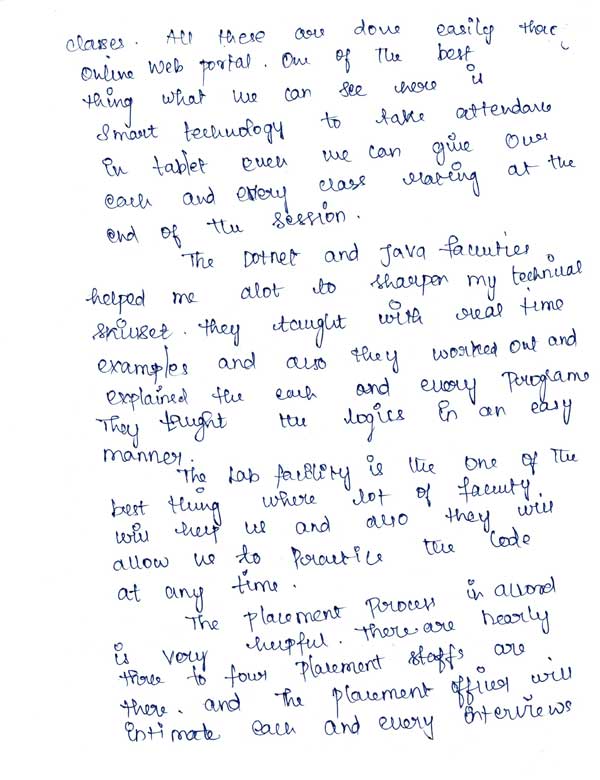 classes. All these are done easily their
Online Web portal. One of The best
thing what we can see here is
Smart technology to take attendance
in tablet even we can give Our
each and every class rating at the
end of the session.
The Dotnet and Java faculties
helped me alot to sharpen my technical
skillset. they taught with real time
examples and also they worked out and
explained the each and every Programe
They taught the logics in an easy
manner.
The Lab facility is the one of The
best thing where lot of faculty
will help us and also they will
allow us to Practice the Code
at any time.
The placement Process in allord
is very helpful. there are nearly
three to four placement staffs are
there. and The placement officer will
intimate each and every interviews